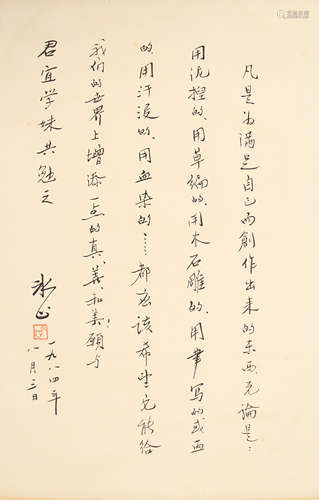 凡是为满足自己而創作出来的东西无論是:
用泥捏的、用草编的、用木石雕的、用筆写的或画
的、用汗浸的、用血染的……都应该希望它能给
我们的世界上增添一点的真、善、和美!願与
君宜学妹共勉之
冰心
一九八四年
八月三日